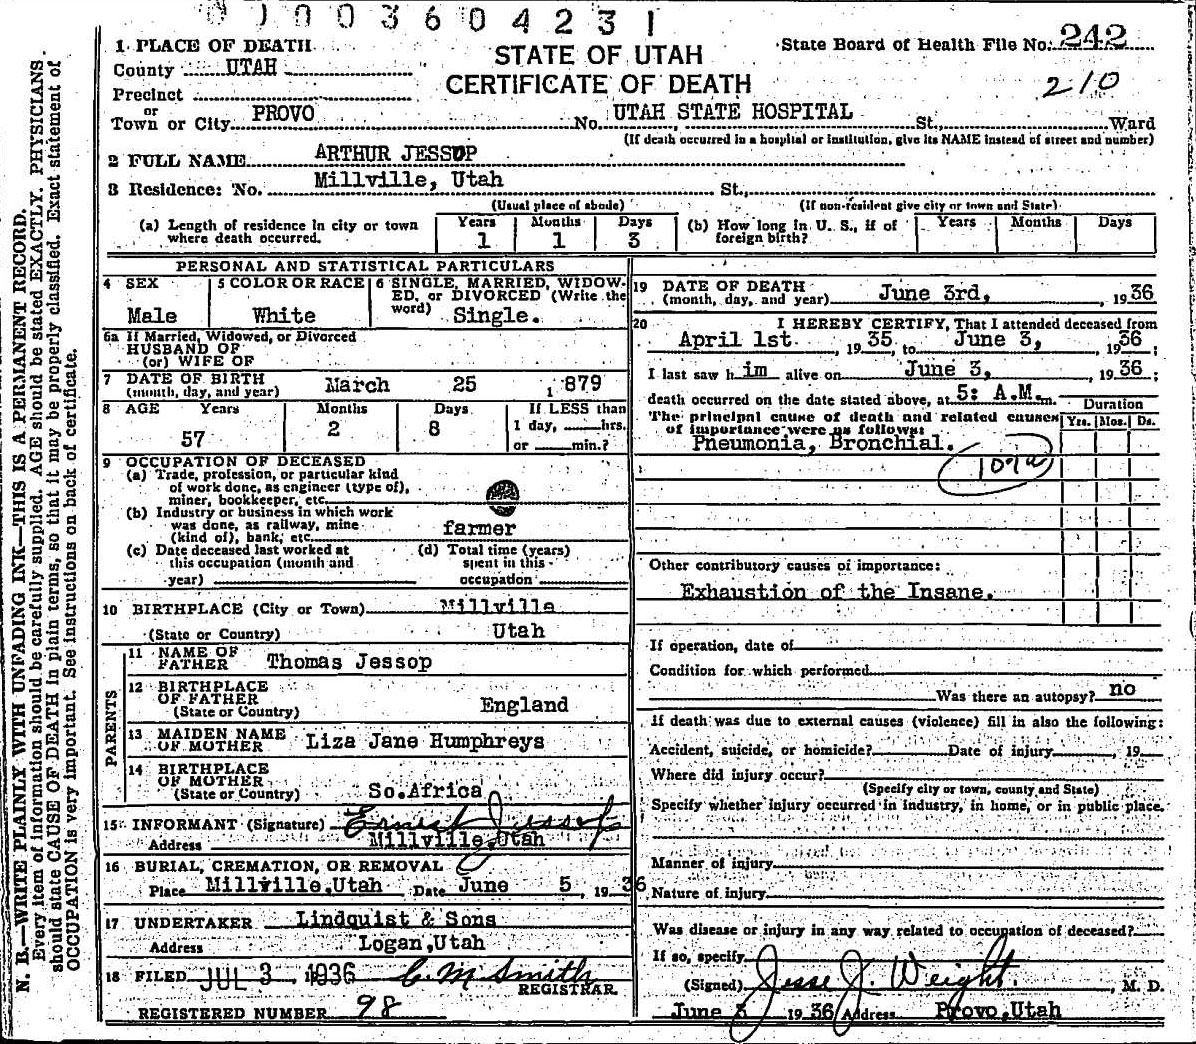 0 0 0 3 6 0 4 2 3 1
1 PLACE OF DEATH
STATE OF UTAH
CERTIFICATE OF DEATH
State Board of Health File No. 242
210
County UTAH
Precinct
or
Town or City PROVO No. UTAH STATE HOSPITAL St., Ward
(If death occurred in a hospital or institution, give its NAME instead of street and number)
2 FULL NAME ARTHUR JESSOP
3 Residence: No. Millville, Utah St.,
(Usual place of abode) (If non-resident give city or town and State)
(a) Length of residence in city or town where death occurred. Years 1 Months 1 Days 3
(b) How long in U. S., if of foreign birth? Years Months Days
PERSONAL AND STATISTICAL PARTICULARS
4 SEX Male
5 COLOR OR RACE White
6 SINGLE, MARRIED, WIDOWED, or DIVORCED (Write the word) Single.
6a If Married, Widowed, or Divorced
HUSBAND OF
(or) WIFE OF
7 DATE OF BIRTH
(month, day, and year) March 25 1879
8 AGE Years 57 Months 2 Days 8 If LESS than
1 day, hrs.
or min.?
9 OCCUPATION OF DECEASED
(a) Trade, profession, or particular kind
of work done, as engineer (type of),
miner, bookkeeper, etc.
(b) Industry or business in which work
was done, as railway, mine
(kind of), bank, etc. farmer
(c) Date deceased last worked at
this occupation (month and
year)
(d) Total time (years)
spent in this
occupation
10 BIRTHPLACE (City or Town) Millville
(State or Country) Utah
PARENTS
11 NAME OF
FATHER Thomas Jessop
12 BIRTHPLACE
OF FATHER
(State or Country) England
13 MAIDEN NAME
OF MOTHER Liza Jane Humphreys
14 BIRTHPLACE
OF MOTHER
(State or Country) So.Africa
15 INFORMANT (Signature) Ernest Jessop
Address Millville,Utah
16 BURIAL, CREMATION, OR REMOVAL
Place Millville,Utah Date June 5, 1936
17 UNDERTAKER Lindquist & Sons
Address Logan,Utah
18 FILED JUL 3 1936 C. M. Smith
REGISTRAR.
REGISTERED NUMBER 98
19 DATE OF DEATH
(month, day, and year) June 3rd, , 1936
20 I HEREBY CERTIFY, That I attended deceased from
April 1st , 1935, to June 3, 1936;
I last saw h im alive on June 3, , 1936;
death occurred on the date stated above, at 5: A.M. m.
Duration
The principal cause of death and related causes
of importance were as follows: Yrs. Mos. Ds.
Pneumonia, Bronchial.
107a
Other contributory causes of importance:
Exhaustion of the Insane.
If operation, date of
Condition for which performed
Was there an autopsy? no
If death was due to external causes (violence) fill in also the following:
Accident, suicide, or homicide? Date of injury , 19
Where did injury occur?
(Specify city or town, county and State)
Specify whether injury occurred in industry, in home, or in public place.
Manner of injury
Nature of injury
Was disease or injury in any way related to occupation of deceased?
If so, specify
(Signed) Jesse J. Weight. , M. D.
June 3 1936 Address Provo,Utah
N. B.—WRITE PLAINLY WITH UNFADING INK—THIS IS A PERMANENT RECORD.
Every item of information should be carefully supplied. AGE should be stated EXACTLY. PHYSICIANS
should state CAUSE OF DEATH in plain terms, so that it may be properly classified. Exact statement of
OCCUPATION is very important. See instructions on back of certificate.